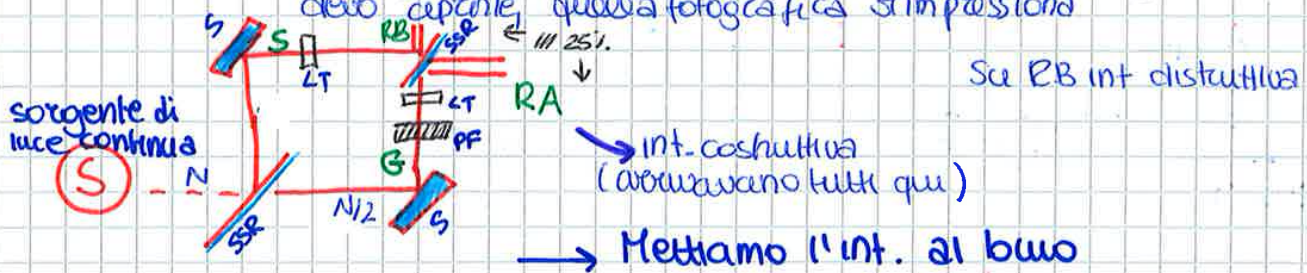 devo capire, quella fotografica si impressiona
S
S
LT
RB
SSR
← 111 25%.
↓
Su RB int distruttiva
LT
RA
PF
sorgente di
luce continua
int. costruttiva
(arrivavano tutti qui)
G
S
N
N/2
S
SSR
→ Mettiamo l'int. al buio